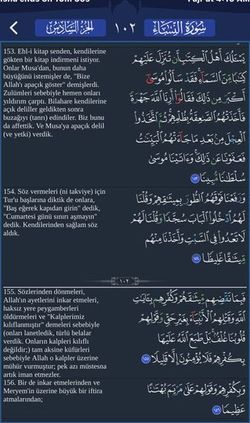 سُورَةُ النِّسَاءِ
١٠٢
الجُزْءُ السَّادِسُ
153. Ehl-i kitap senden, kendilerine
gökten bir kitap indirmeni istiyor.
Onlar Musa'dan, bunun daha
büyüğünü istemişler de, "Bize
Allah'ı apaçık göster" demişlerdi.
Zulümleri sebebiyle hemen onları
yıldırım çarptı. Bilahare kendilerine
açık deliller geldikten sonra
buzağıyı (tanrı) edindiler. Biz bunu
da affettik. Ve Musa'ya apaçık delil
(ve yetki) verdik.
يَسْـَٔلُكَ أَهْلُ الْكِتَٰبِ أَن تُنَزِّلَ عَلَيْهِمْ
كِتَٰبًا مِّنَ السَّمَآءِ فَقَدْ سَأَلُوا۟ مُوسَىٰٓ
أَكْبَرَ مِن ذَٰلِكَ فَقَالُوٓا۟ أَرِنَا اللَّهَ جَهْرَةً
فَأَخَذَتْهُمُ الصَّٰعِقَةُ بِظُلْمِهِمْ ثُمَّ اتَّخَذُوا۟
الْعِجْلَ مِنۢ بَعْدِ مَا جَآءَتْهُمُ الْبَيِّنَٰتُ
فَعَفَوْنَا عَن ذَٰلِكَ وَءَاتَيْنَا مُوسَىٰ
سُلْطَٰنًا مُّبِينًا ١٥٣
154. Söz vermeleri (ni takviye) için
Tur'u başlarına diktik de onlara,
"Baş eğerek kapıdan girin" dedik,
"Cumartesi günü sınırı aşmayın"
dedik. Kendilerinden sağlam söz
aldık.
وَرَفَعْنَا فَوْقَهُمُ الطُّورَ بِمِيثَٰقِهِمْ وَقُلْنَا
لَهُمُ ادْخُلُوا۟ الْبَابَ سُجَّدًا وَقُلْنَا لَهُمْ
لَا تَعْدُوا۟ فِى السَّبْتِ وَأَخَذْنَا مِنْهُم
مِّيثَٰقًا غَلِيظًا ١٥٤
١٠٣
155. Sözlerinden dönmeleri,
Allah'ın ayetlerini inkar etmeleri,
haksız yere peygamberleri
öldürmeleri ve "Kalplerimiz
kılıflanmıştır" demeleri sebebiyle
(onları lanetledik, türlü belalar
verdik. Onların kalpleri kılıflı
değildir;) tam aksine küfürleri
sebebiyle Allah o kalpler üzerine
mühür vurmuştur; pek azı müstesna
artık iman etmezler.
فَبِمَا نَقْضِهِم مِّيثَٰقَهُمْ وَكُفْرِهِم بِـَٔايَٰتِ
اللَّهِ وَقَتْلِهِمُ الْأَنۢبِيَآءَ بِغَيْرِ حَقٍّ وَقَوْلِهِمْ
قُلُوبُنَا غُلْفٌۢ بَلْ طَبَعَ اللَّهُ عَلَيْهَا
بِكُفْرِهِمْ فَلَا يُؤْمِنُونَ إِلَّا قَلِيلًا ١٥٥
156. Bir de inkar etmelerinden ve
Meryem'in üzerine büyük bir iftira
atmalarından;
وَبِكُفْرِهِمْ وَقَوْلِهِمْ عَلَىٰ مَرْيَمَ بُهْتَٰنًا
عَظِيمًا ١٥٦